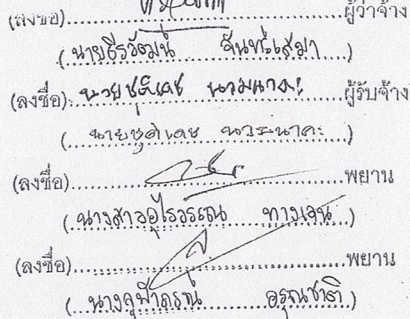 (ลงชื่อ)....................ผู้ว่าจ้าง
(นายธีรวัฒน์ จันทร์เสมา)
(ลงชื่อ)....................ผู้รับจ้าง
(นายชุติเดช นวมนาคะ)
(ลงชื่อ)....................พยาน
(นางสาวอุไรวรรณ ทางเจน)
(ลงชื่อ)....................พยาน
(นางจุฬาภรณ์ อรุณชาติ)